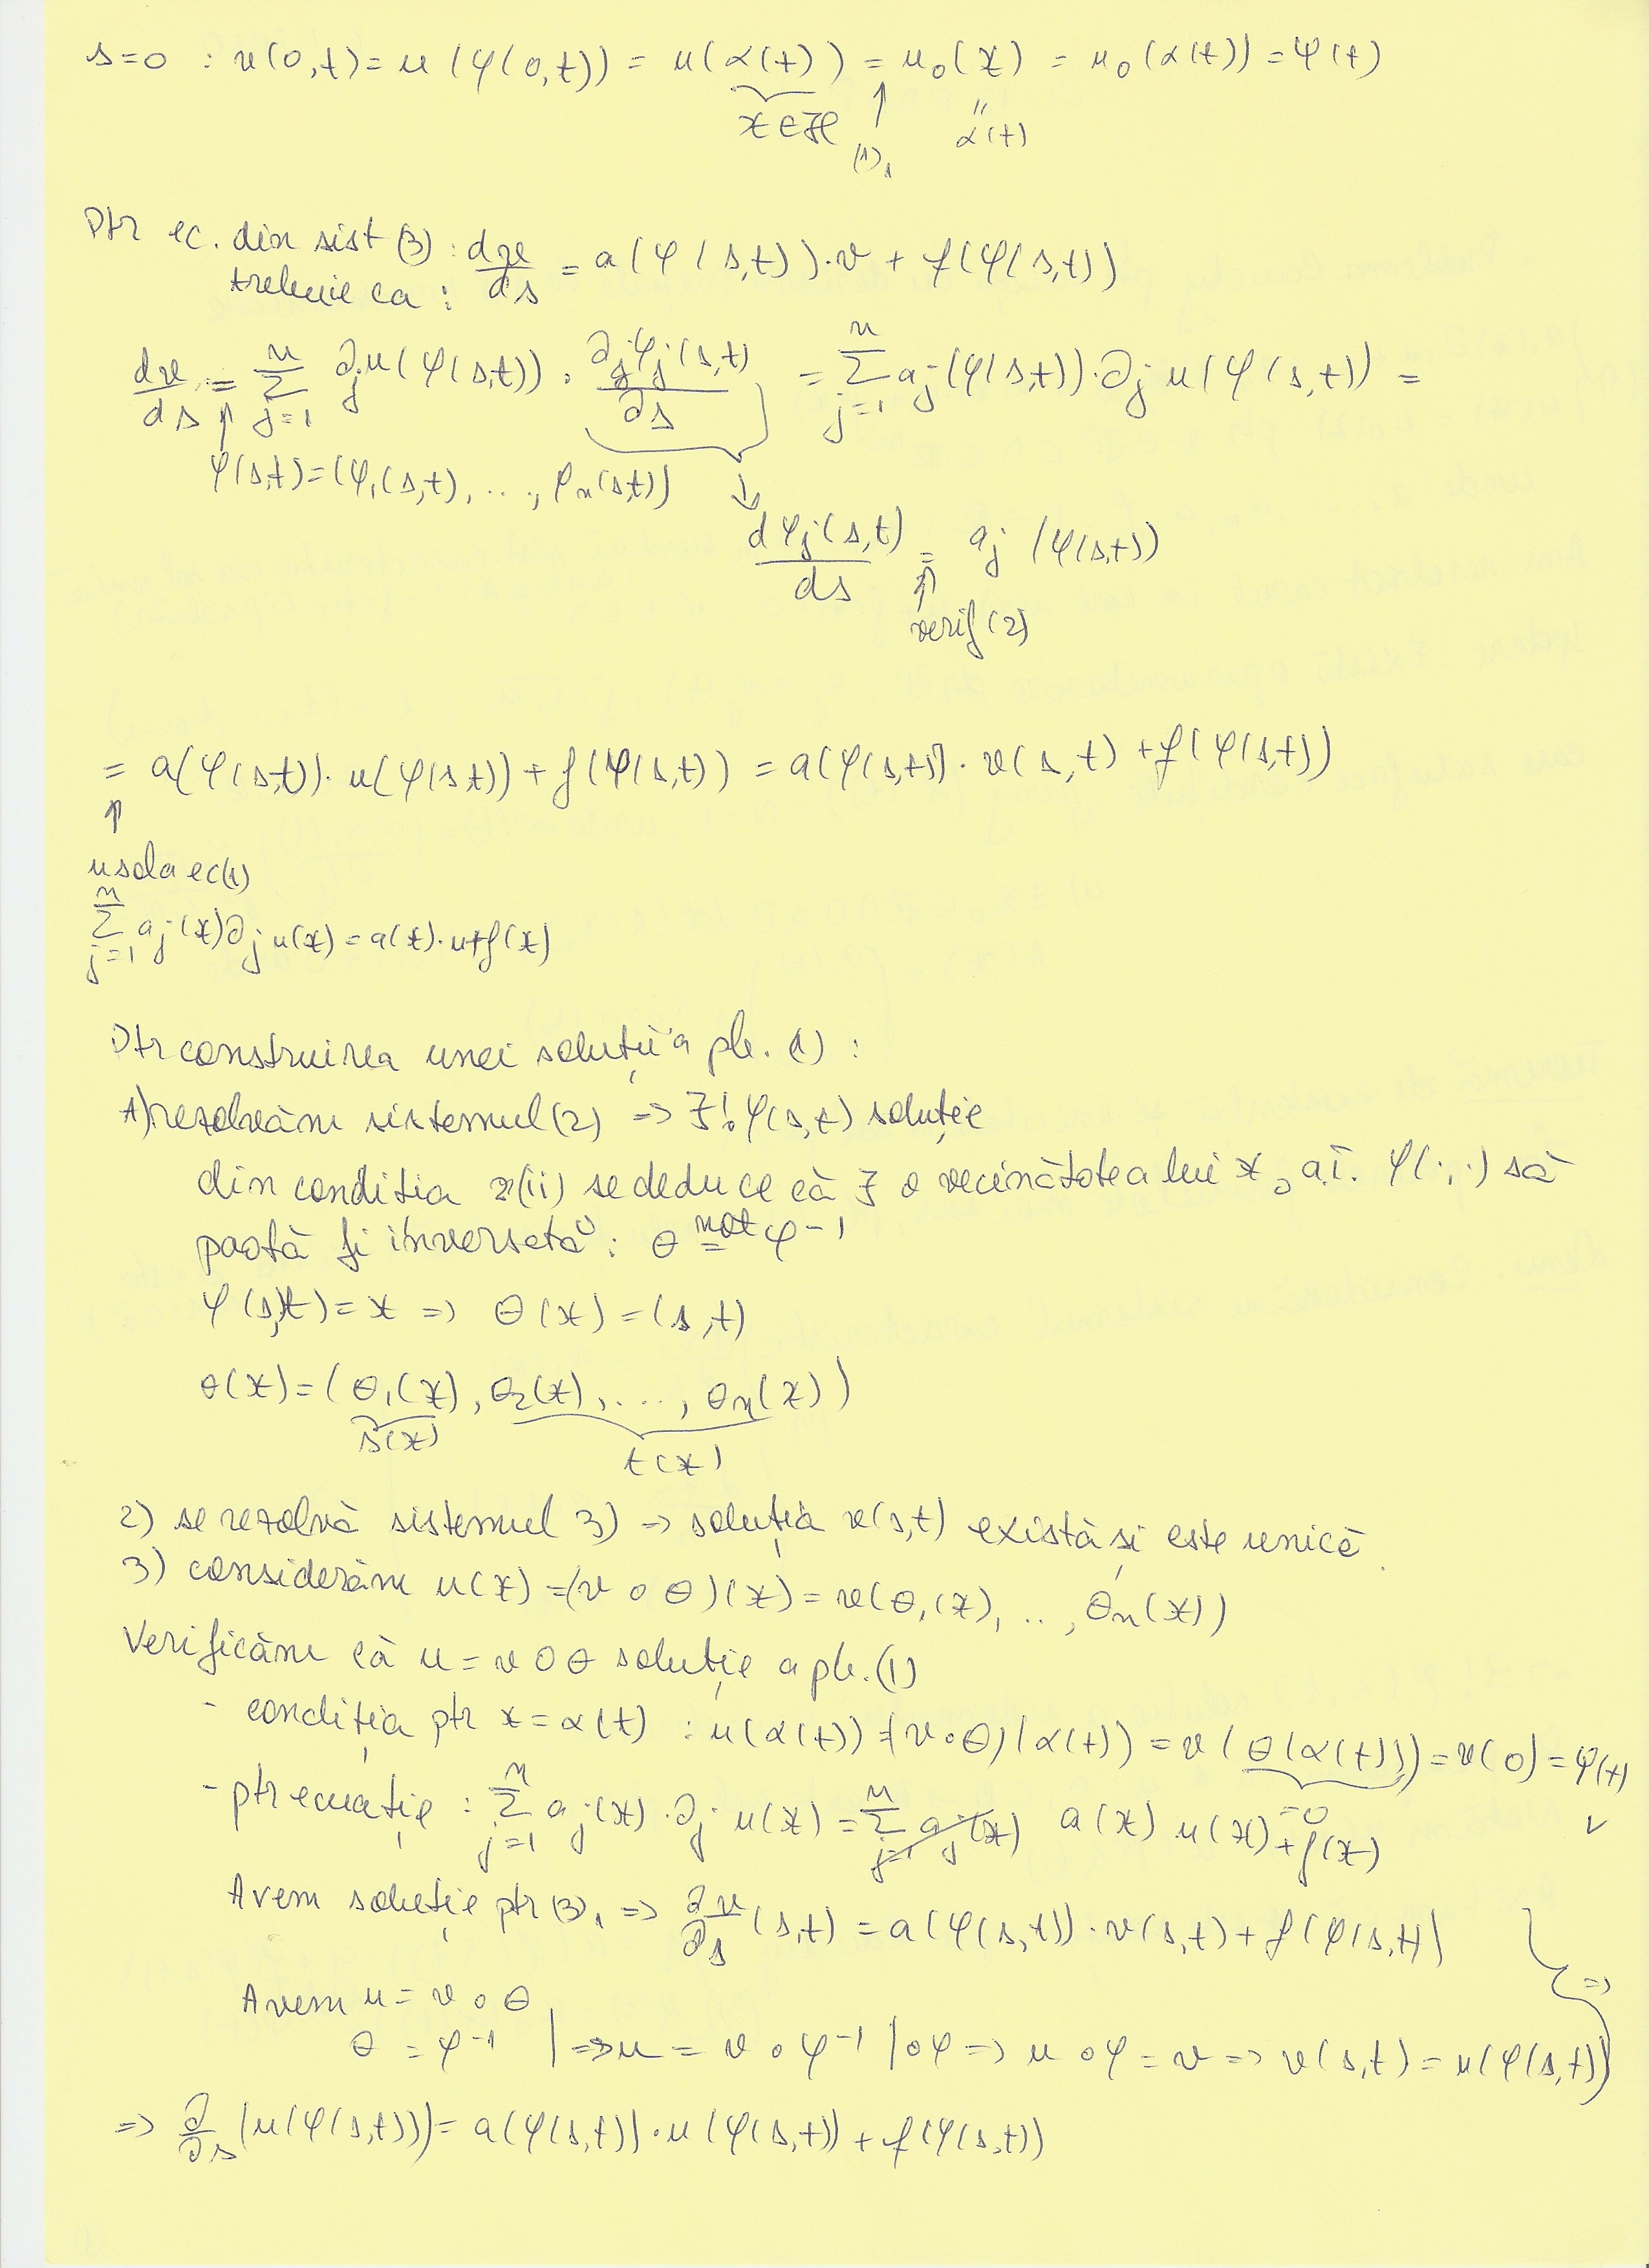 s=0 : v(0,t) = u(φ(0,t)) = u(α(t)) = u₀(x) = u₀(α(t)) = φ(t)
x∈ℋ ↑ (1)₁ " α(t)
Ptr ec. din sist (3) : dv/ds = a(φ(s,t))·v + f(φ(s,t))
trebuie ca :
dv/ds = Σ_{j=1}^{n} ∂ⱼu(φ(s,t)) · ∂φⱼ(s,t)/∂s = Σ_{j=1}^{n} aⱼ(φ(s,t))·∂ⱼu(φ(s,t)) =
φ(s,t)=(φ₁(s,t), ..., φₙ(s,t))
dφⱼ(s,t)/ds = aⱼ(φ(s,t))
↑ verif (2)
= a(φ(s,t))·u(φ(s,t)) + f(φ(s,t)) = a(φ(s,t))·v(s,t) + f(φ(s,t))
↑
u sol a ec(1)
Σ_{j=1}^{n} aⱼ(x)∂ⱼu(x) = a(x)·u+f(x)
Ptr construirea unei soluții a pb. (1) :
1) rezolvăm sistemul (2) => ∃! φ(s,t) soluție
din condiția 2(ii) se deduce că ∃ o vecinătate a lui x₀ a.î. φ(·,·) să
poată fi inversată : θ not= φ⁻¹
φ(s,t) = x => θ(x) = (s,t)
θ(x) = (θ₁(x), θ₂(x), ..., θₙ(x))
s(x) t(x)
2) se rezolvă sistemul 3) => soluția v(s,t) există și este unică.
3) considerăm u(x) = (v ∘ θ)(x) = v(θ₁(x), .., θₙ(x))
Verificăm că u = v ∘ θ soluție a pb. (1)
- condiția ptr x = α(t) : u(α(t)) = (v∘θ)(α(t)) = v(θ(α(t))) = v(0) = φ(t)
=0 ✓
- ptr ecuație : Σ_{j=1}^{n} aⱼ(x)·∂ⱼu(x) = Σ_{j=1}^{n} aⱼ(x) a(x) u(x) + f(x)
Avem soluție ptr (3)₁ => ∂v/∂s (s,t) = a(φ(s,t))·v(s,t) + f(φ(s,t))
Avem u = v ∘ θ =>
θ = φ⁻¹ | => u = v ∘ φ⁻¹ | ∘φ => u ∘ φ = v => v(s,t) = u(φ(s,t))
=> ∂/∂s (u(φ(s,t))) = a(φ(s,t))·u(φ(s,t)) + f(φ(s,t))